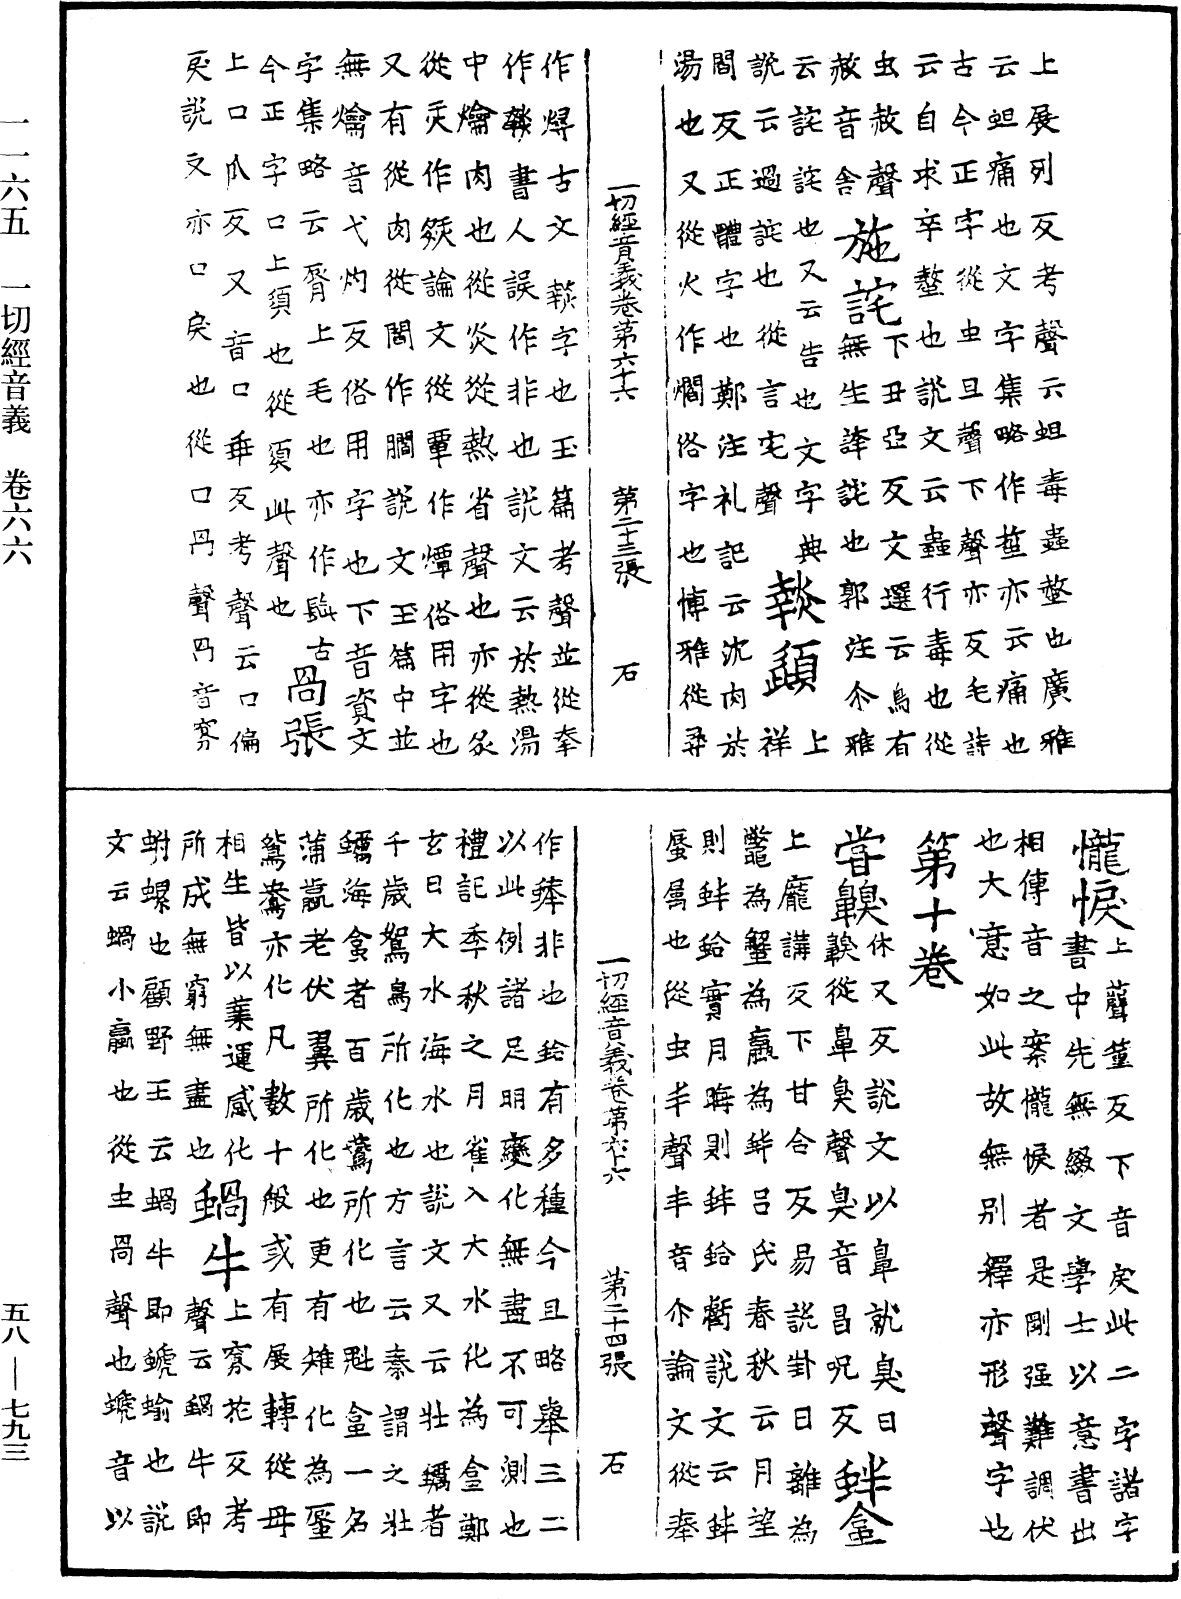 一一六五 一切經音義 卷六六
上展列反考聲云蛆毒蟲螫也廣雅
云蛆痛也文字集略作䖧亦云痛也
古今正字從虫旦聲下聲亦反毛詩
云自求辛螫也說文云蟲行毒也從
虫赦聲 施詫 下丑亞反文選云烏有
赦音舍 無生誇詫也郭注尒雅
云詫詫也又云告也文字典
說云過詫也從言宅聲 㷟䫇 上祥
閻反正體字也鄭注礼記云沈肉於
湯也又從火作燗俗字也博雅從尋
一切經音義卷第六十六 第二十三張 石
作燖古文 㷟字也玉篇考聲並從奉
作 書人誤作非也說文云於熱湯
中爚肉也從炎從熱省聲也亦從炙
從灻作 論文從覃作燂俗用字也
又有從肉從閻作爓說文玉篇中並
無爚音弋灼反俗用字也下音資文
字集略云脣上毛也亦作髭古
今正字口上須也從須此聲也 咼張
上口爪反又音口垂反考聲云口偏
戾說文亦口戾也從口冎聲冎音寡
㦬悷 上聾董反下音戾此二字諸字
書中先無綴文學士以意書出
相傳音之案㦬悷者是剛强難調伏
也大意如此故無別釋亦形聲字也
第十卷
甞齅 休又反說文以鼻就臭曰
齅從鼻臭聲臭音昌呪反 蚌蛤
上龐講反下甘合反易說卦曰離為
鼈為蟹為蠃為蚌呂氏春秋云月望
則蚌蛤實月晦則蚌蛤虧說文云蚌
蜃屬也從虫丰聲丰音尒論文從奉
一切經音義卷第六十六 第二十四張 石
作 非也蛤有多種今且略舉三二
以此例諸足明變化無盡不可測也
禮記季秋之月雀入大水化為蛤鄭
玄曰大水海水也說文又云牡蠣者
千歲鴽鳥所化也方言云秦謂之牡
蠣海蛤者百歲鷰所化也魁蛤一名
蒲蠃老伏翼所化也更有雉化為蜃
鴛鴦亦化凡數十般或有展轉從毋
相生皆以業運感化 蝸牛 上寡花反考
所成無窮無盡也 聲云蝸牛即
蚹螺也顧野王云蝸牛即螔蝓也說
文云蝸小蠃也從虫咼聲也螔音以
五八—七九三